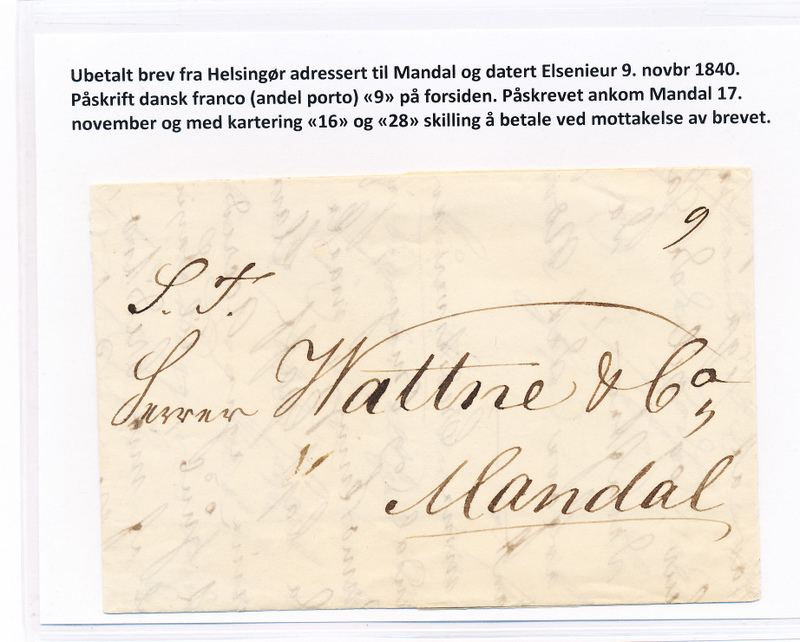 Ubetalt brev fra Helsingør adressert til Mandal og datert Elsenieur 9. novbr 1840.
Påskrift dansk franco (andel porto) «9» på forsiden. Påskrevet ankom Mandal 17.
november og med kartering «16» og «28» skilling å betale ved mottakelse av brevet.
9
S. T.
Herrer Wattne & Co
Mandal